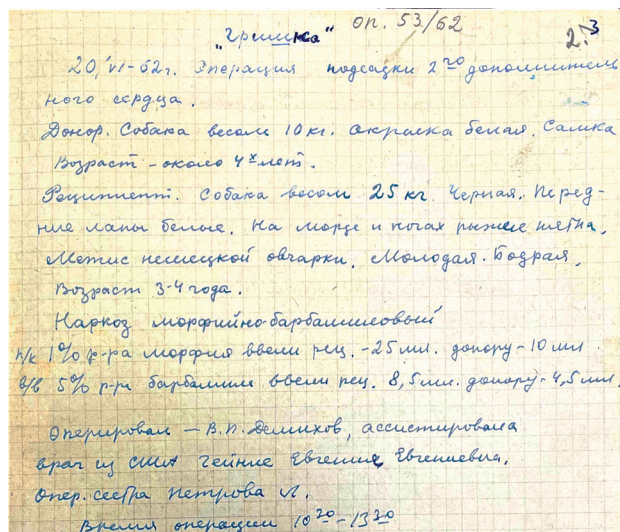 "Гришка" оп. 53/62
2.3
20/VI-62г. Операция подсадки 2го дополнитель
ного сердца.
Донор. Собака весом 10 кг. окраска белая. Самка
Возраст - около 4х лет.
Реципиент. Собака весом 25 кг. Черная. Перед-
ние лапы белые. На морде и ногах рыжие пятна.
Метис немецкой овчарки. Молодая. Бодрая.
Возраст 3-4 года.
Наркоз морфийно-барбамиловый
п/к 1% р-ра морфия ввели рец. - 25 мл. донору - 10 мл
в/в 5% р-ра барбамила ввели рец. 8,5 мл. донору - 4,5 мл.
Оперировал — В.П. Демихов, ассистировала
врач из США Евгения Евгениевна.
Опер. сестра Петрова Л.
Время операции 10 20 - 13 20